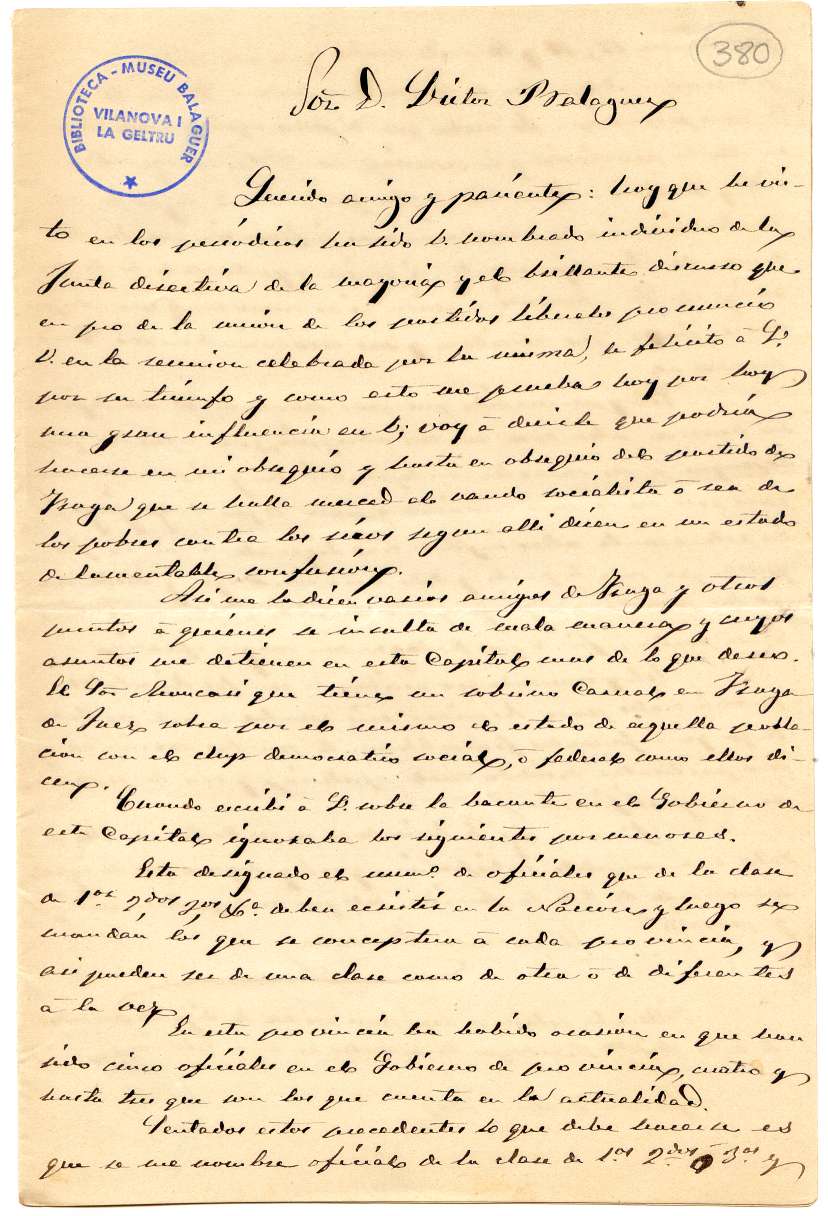 380
BIBLIOTECA - MUSEU BALAGUER
VILANOVA I
LA GELTRU
Sor. D. Victor Balaguer
Querido amigo y pariente: hoy que he vis-
to en los periódicos ha sido V. nombrado individuo de la
Junta directiva de la mayoria y el brillante discurso que
en pro de la unión de los partidos liberales pronunció
V. en la reunion celebrada por la misma, le felicito á V.
por su triunfo y como esto me prueba hoy por hoy
una gran influencia en V; voy á decirle que podria
hacerse en mi obsequio y hasta en obsequio del partido de
Fraga que se halla merced al vando socialista ó sea de
los pobres contra los ricos segun alli dicen en un estado
de lamentable confusión.
Asi me lo dicen varios amigos de Fraga y otros
puntos á quienes se insulta de mala manera y cuyos
asuntos me detienen en esta Capital mas de lo que deseo.
El Sor. Moncasi que tiene un sobrino Casual en Fraga
de Juez sabra por el mismo el estado de aquella pobla-
cion con el club democratico social, ó federal como ellos di-
cen.
Cuando escribi á V. sobre la bacante en el Gobierno de
esta Capital ignoraba los siguientes pormenores.
Esta designado el num.o de oficiales que de la clase
de 1.os 2dos 3os &a. deben ecsistir en la Nación y luego se
mandan los que se conceptua á cada provincia, y
asi pueden ser de una clase como de otra ó de diferentes
á la vez.
En esta provincia ha habido ocasión en que han
sido cinco oficiales en el Gobierno de provincia, cuatro y
hasta tres que son los que cuenta en la actualidad.
Sentados estos precedentes lo que debe hacerse es
que se me nombre oficial de la clase de 1.os 2.dos ó 3.os y